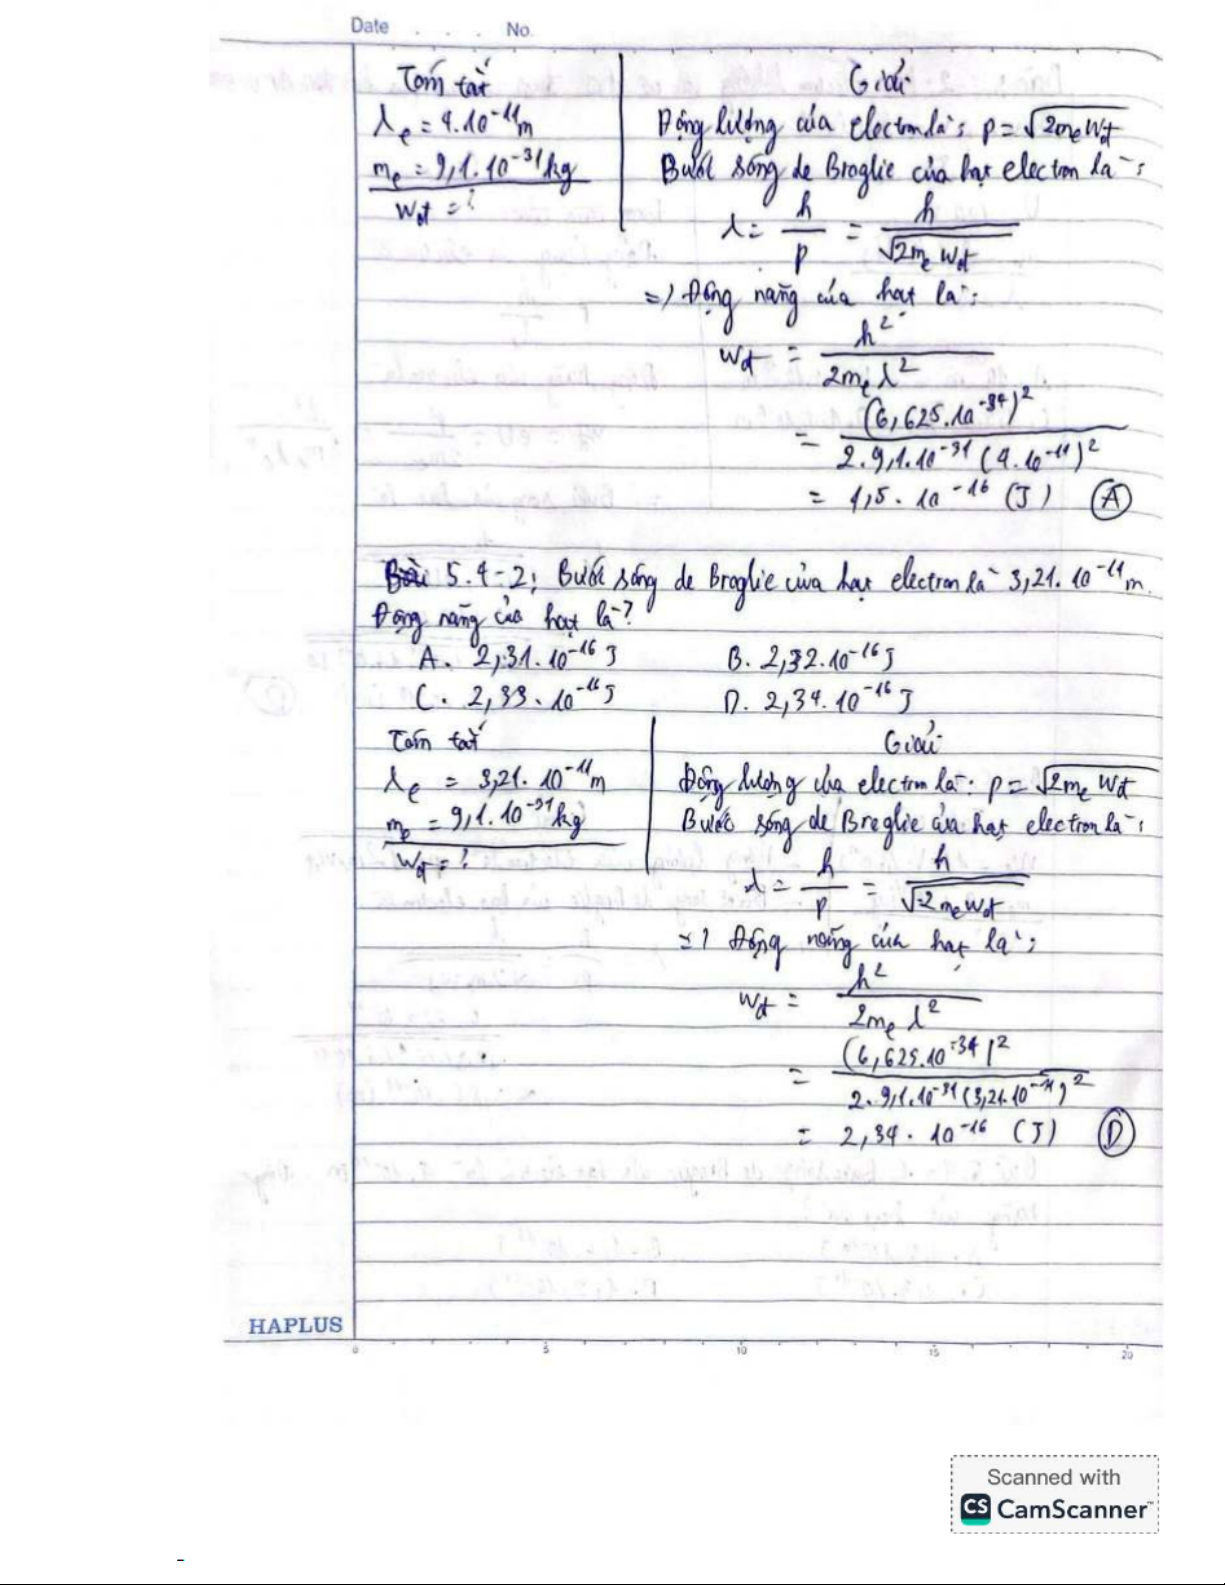 Date . . . . No.
Tóm tắt
λe = 4.10⁻¹¹m
me = 9,1.10⁻³¹kg
Wđ = ?
Giải
Động lượng của electron là: p = √2meWđ
Bước sóng de Broglie của hạt electron là:
λ = h/p = h/√2meWđ
=) Động năng của hạt là:
Wđ = h²/2meλ²
= (6,625.10⁻³⁴)²/2.9,1.10⁻³¹(4.10⁻¹¹)²
= 1,5.10⁻¹⁶ (J) Ⓐ
Bài 5.4-2: Bước sóng de Broglie của hạt electron là 3,21.10⁻¹¹m.
Động năng của hạt là?
A. 2,31.10⁻¹⁶J B. 2,32.10⁻¹⁶J
C. 2,33.10⁻¹⁶J D. 2,34.10⁻¹⁶J
Tóm tắt
λe = 3,21.10⁻¹¹m
me = 9,1.10⁻³¹kg
Wđ = ?
Giải
Động lượng của electron là: p = √2meWđ
Bước sóng de Breglie của hạt electron là:
λ = h/p = h/√2meWđ
=) Động năng của hạt là:
Wđ = h²/2meλ²
= (6,625.10⁻³⁴)²/2.9,1.10⁻³¹(3,21.10⁻¹¹)²
= 2,34.10⁻¹⁶ (J) Ⓓ
HAPLUS
0 5 10 15 20
Scanned with
CS CamScanner